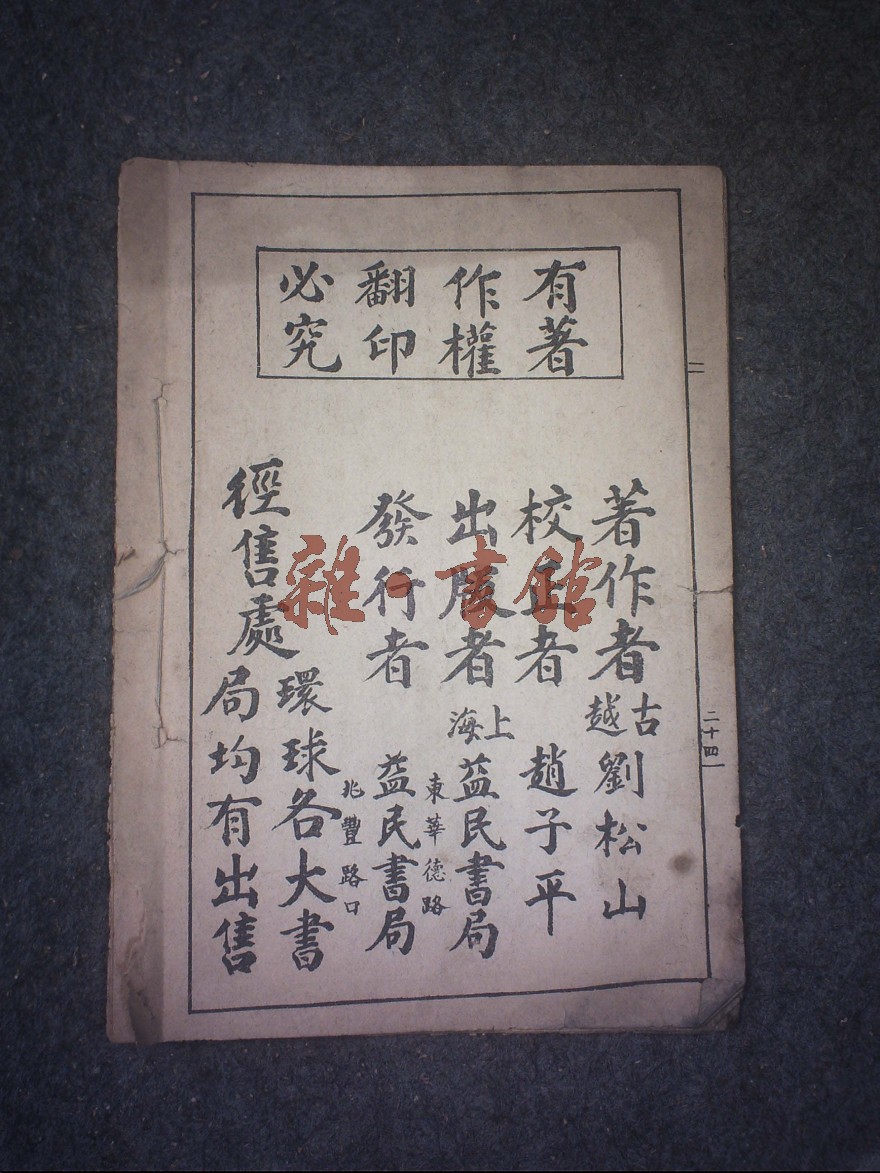 有著
作權
翻印
必究
著作者 古越 劉松山
校正者 趙子平
出版者 上海 益民書局
東華德路
發行者 益民書局
兆豐路口
經售處 環球各大書
局均有出售
二
二十四
雜·書館